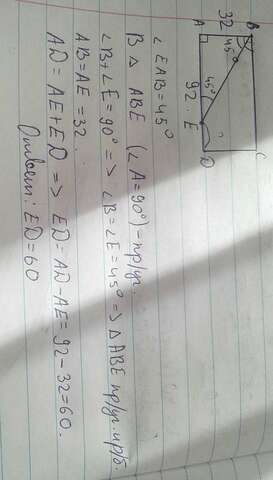 A
B
C
D
E
32
45°
45°
92
∠EAB=45°
В △ ABE (∠A=90°)=пр/уг.
∠B+∠E=90° => ∠B=∠E=45° => △ABE пр/уг. и р/б.
AB=AE=32.
AD=AE+ED => ED=AD-AE=92-32=60.
Ответ: ED=60